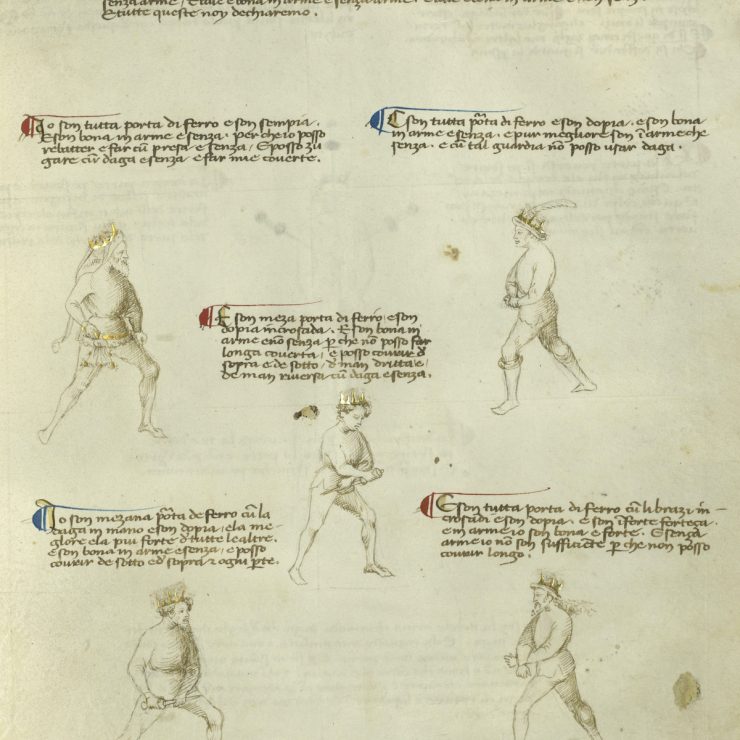 senza arme /
E tutte queste noy dechiaremo.
Io son tutta porta di ferro e son sempia.
E son bona in arme e senza. perche io posso
rebatter e far cū presa e senza / E posso zu
gare cū daga e senza e far mie coverte.
E son tutta pōta di ferro e son dopia. e son bona
in arme e senza. e pur megliore son ī arme che
senza. e cū tal guardia nō posso usar daga.
E son meza porta di ferro e son
dopia incrosada. E son bona in
arme e nō senza p̱ che nō posso far
longa coverta / e posso covrir d̄
sopra e de sotto / d̄ man dritta e /
de man riversa cū daga e senza.
Io son mezana pōta de ferro cū la
daga in mano e son dopia / e la me-
glore e la piu forte d̄ tutte le altre.
E son bona in arme e senza / e posso
covrir de sotto ed̄ sopra ⁊ ogni p̱te.
E son tutta porta di ferro cū li brazi in-
crosadi e son dopia. e son ī forte forteça.
e in arme io son bona e forte. E senza
arme io nō son sufficiente p̱ che non posso
covrir longo.